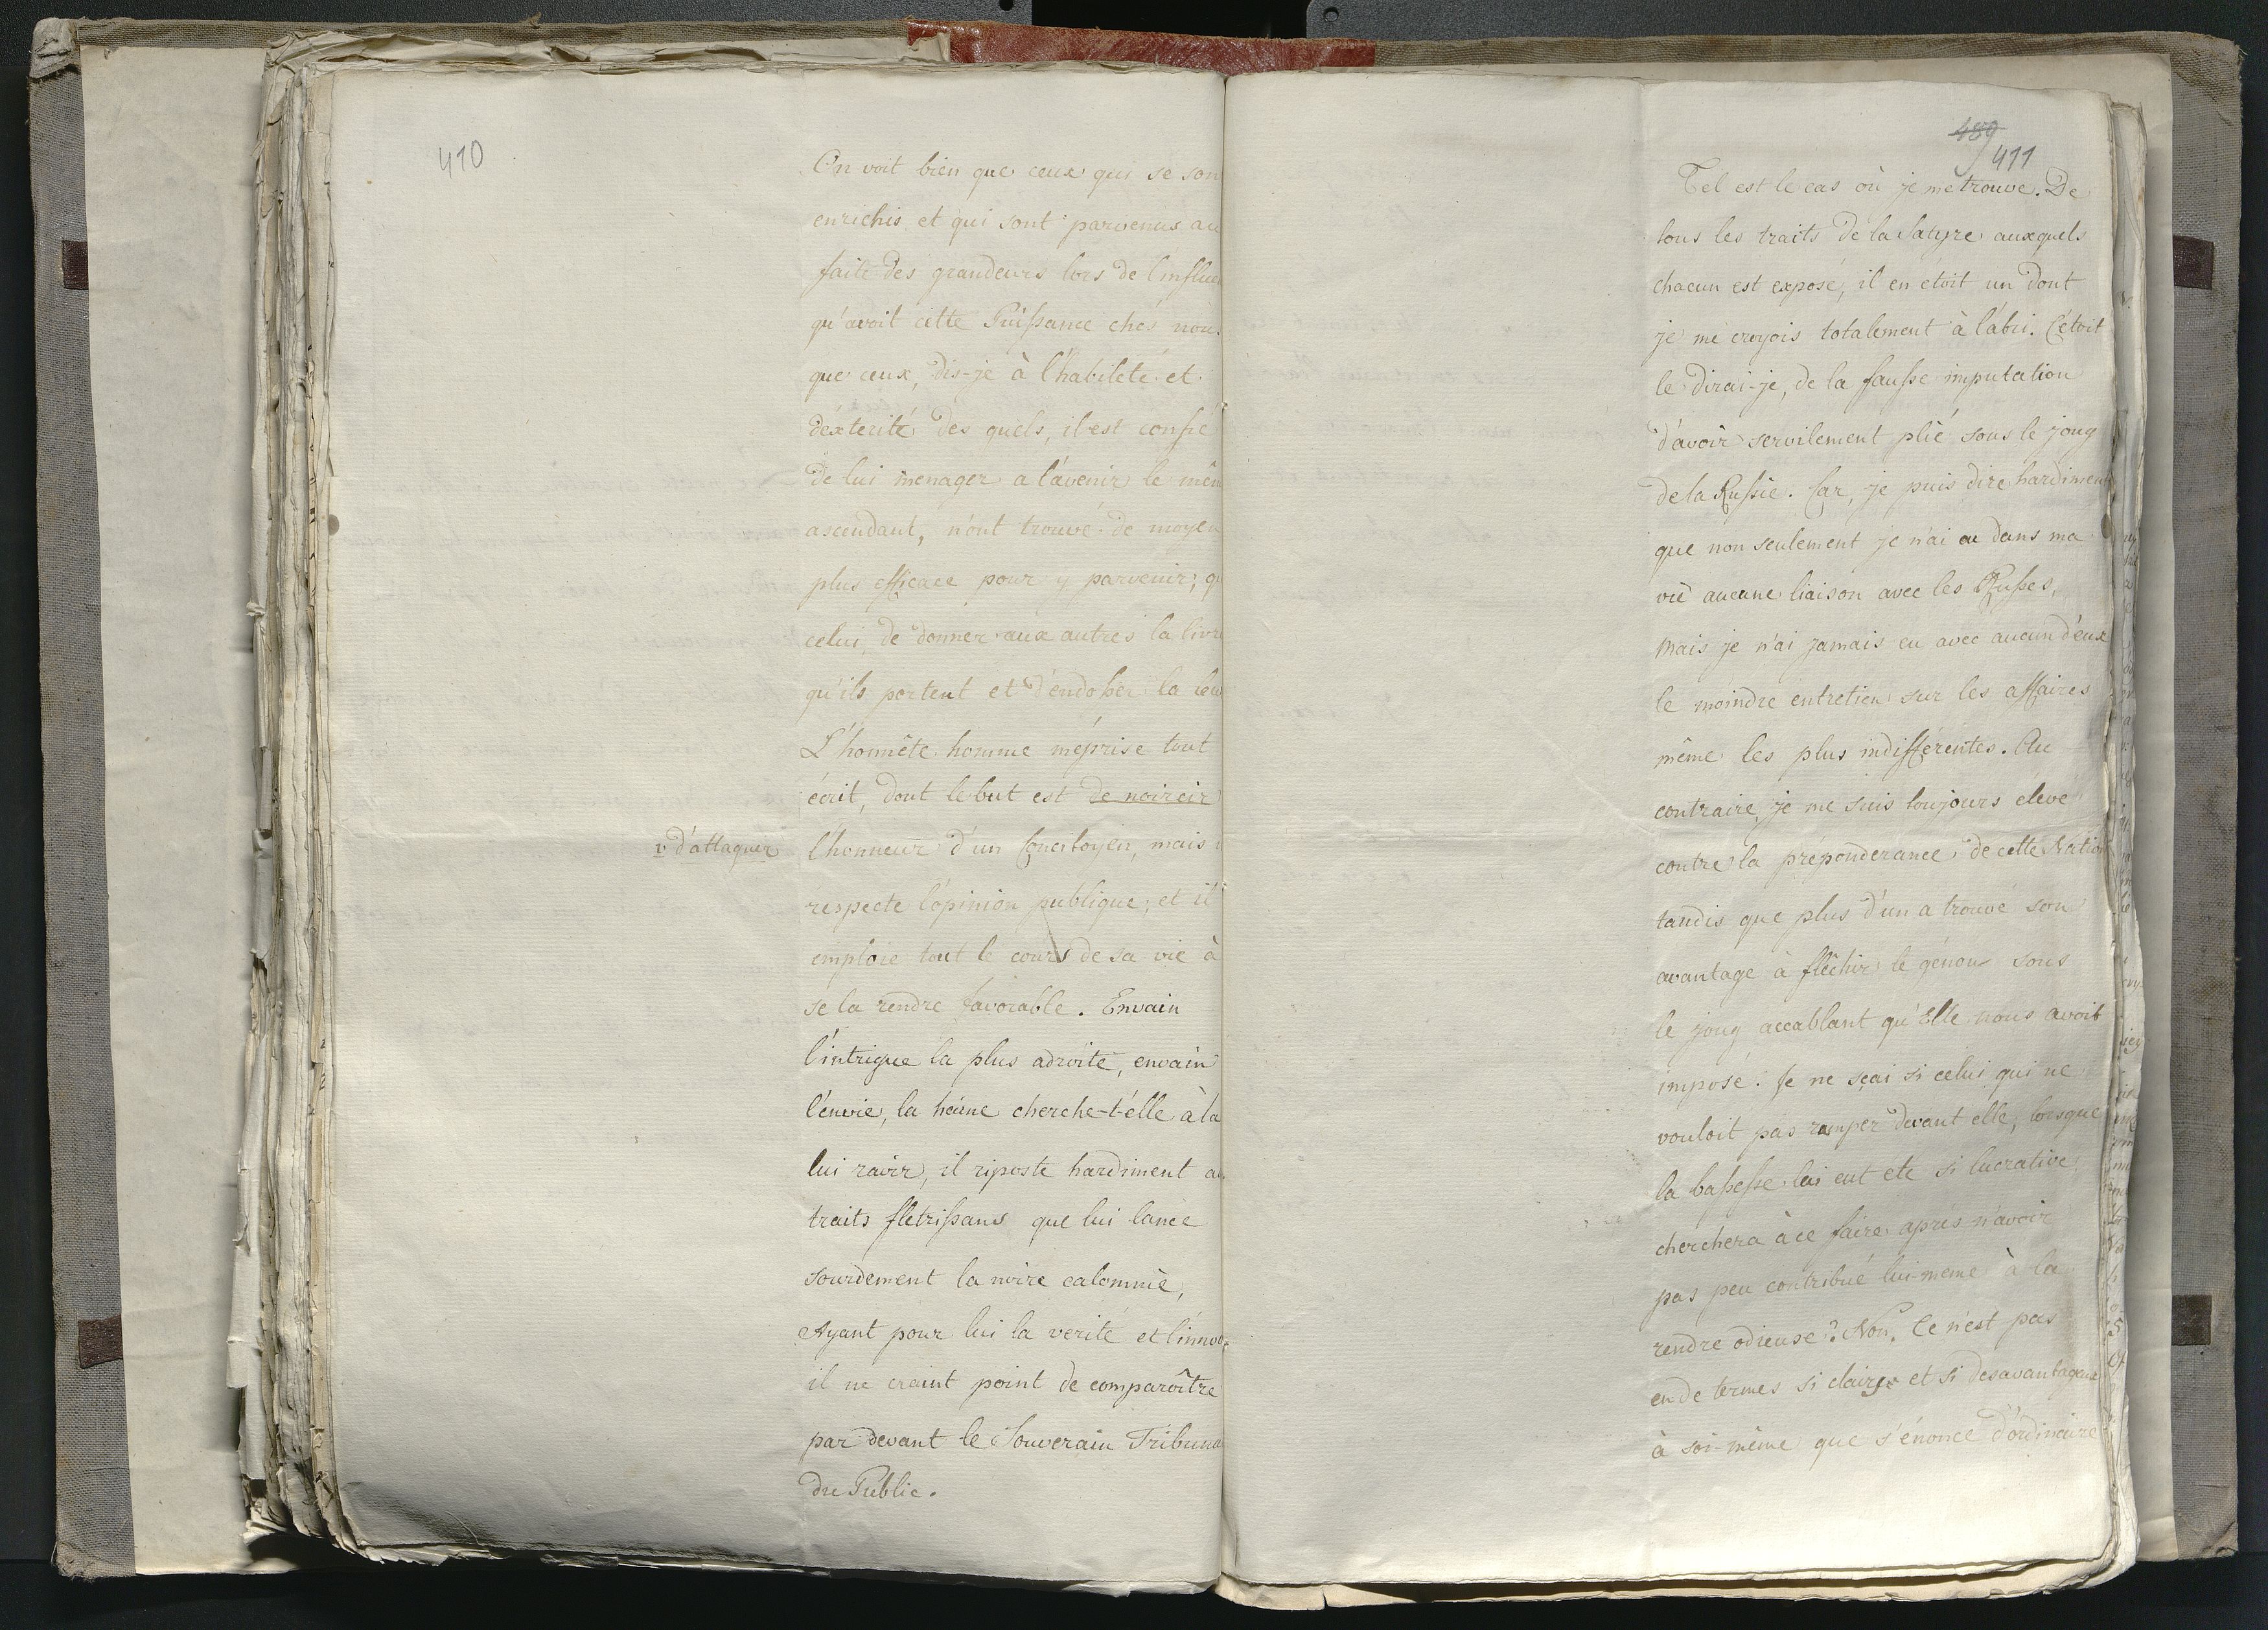 410
On voit bien que ceux qui se son
enrichis et qui sont parvenus au
faite des grandeurs lors de l'influe
qu'avoit cette Puissance chés nou
que ceux, dis-je à l'habileté et
déxterité des quels, il est confié
de lui menager a l'avenir le mêm
ascendant, n'ont trouvé de moyen
plus efficace pour y parvenir, qu
celui, de donner aux autres la livre
qu'ils portent et d'endosser la leu
L'honnête homme méprise tout
écrit, dont le but est de noircir
v d'attaquer
l'honneur d'un Concitoyen, mais
respecte l'opinion publique, et il
emploie tout le cours de sa vie à
se la rendre favorable. Envain
l'intrigue la plus adroite, envain
l'envie, la haine cherche-t-elle à la
lui ravir, il riposte hardiment au
traits fletrissans que lui lance
sourdement la noire calomnie,
Ayant pour lui la verité et l'innoc
il ne craint point de comparoître
par devant le Souverain Tribuna
du Public.
489
411
Tel est le cas où je me trouve. De
tous les traits de la Satyre auxquels
chacun est exposé, il en étoit un dont
je me croyois totalement à l'abri. C'étoit
le dirai-je, de la fausse imputation
d'avoir servilement plié sous le joug
de la Russie. Car, je puis dire hardiment
que non seulement je n'ai eu dans ma
vie aucune liaison avec les Russes,
mais je n'ai jamais eu avec aucun d'eux
le moindre entretien sur les affaires
même les plus indifférentes. Au
contraire, je me suis toujours élevé
contre la préponderance de cette Nation
tandis que plus d'un a trouvé son
avantage à fléchir le génou sous
le joug accablant qu'Elle nous avoit
imposé. Je ne sçai si celui qui ne
vouloit pas ramper devant elle, lorsque
la bassesse lui eut eté si lucrative
cherchera à ce faire aprés n'avoir
pas peu contribué lui-meme à la
rendre odieuse? Non. Ce n'est pas
en de termes si claires et si desavantageux
à soi-même que s'énonce d'ordinaire